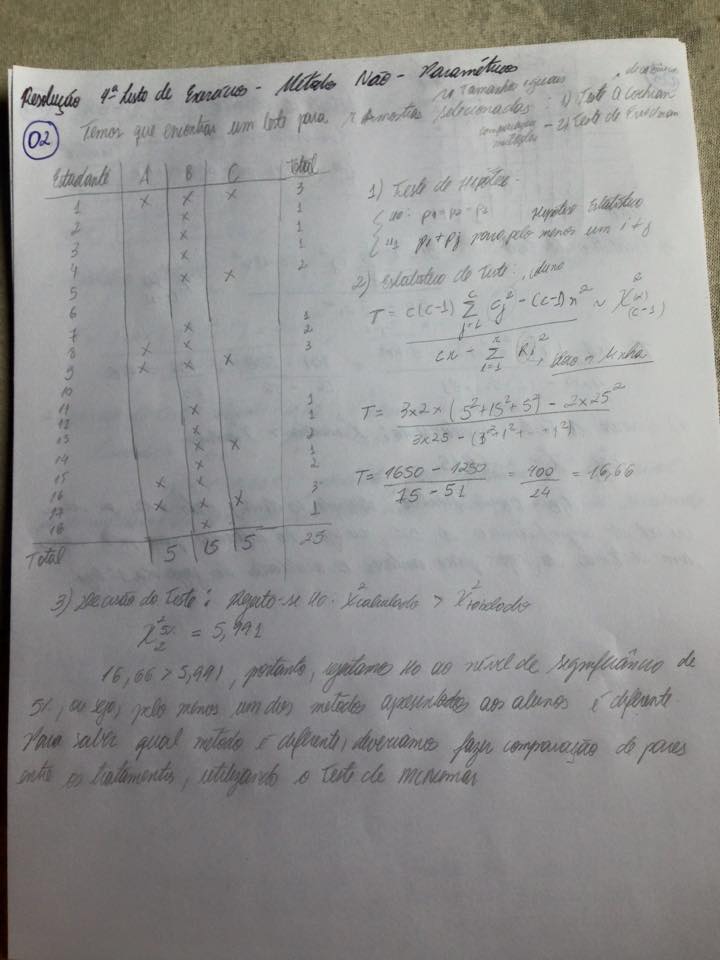 Resolução 4ª Lista de Exercícios - Métodos Não - Paramétricos
02
Temos que encontrar um teste para r Amostras selecionadas: 1) Teste Q Cochran
comparações múltiplas - 2) Teste de Friedman
Estudante A B C Total
1 x x x 3
2 x 1
3 x 1
4 x 1
5 x x 2
6
7 x 1
8 x x 2
9 x x x 3
10
11 x 1
12 x 1
13 x x 2
14 x 1
15 x x 2
16 x x x 3
17 x 1
18
Total 5 15 5 25
1) Teste de Hipótese
H0: p1 = p2 = p3 Hipótese Estatística
H1 pi ≠ pj para pelo menos um i ≠ j
2) Estatística de Teste: coluna
T = c(c-1) Σ Cj² - (c-1) n² ~ χ²(α) (c-1)
j=1
cn - Σ Ri², são n linha
i=1
T = 3x2x(5²+15²+5²) - 2x25²
3x25 - (3²+1²+...+1²)
T = 1650 - 1250 = 400 = 16,66
75 - 51 24
3) Decisão do Teste: Rejeita-se H0. X² calculado > X² tabelado
X² 5% 2 = 5,991
16,66 > 5,991, portanto, rejeitamos H0 ao nível de significância de
5%, ou seja, pelo menos um dos metodos apresentados aos alunos é diferente.
Para saber qual método é diferente, deveriamos fazer comparação de pares
entre os tratamentos, utilizando o Teste de McNemar